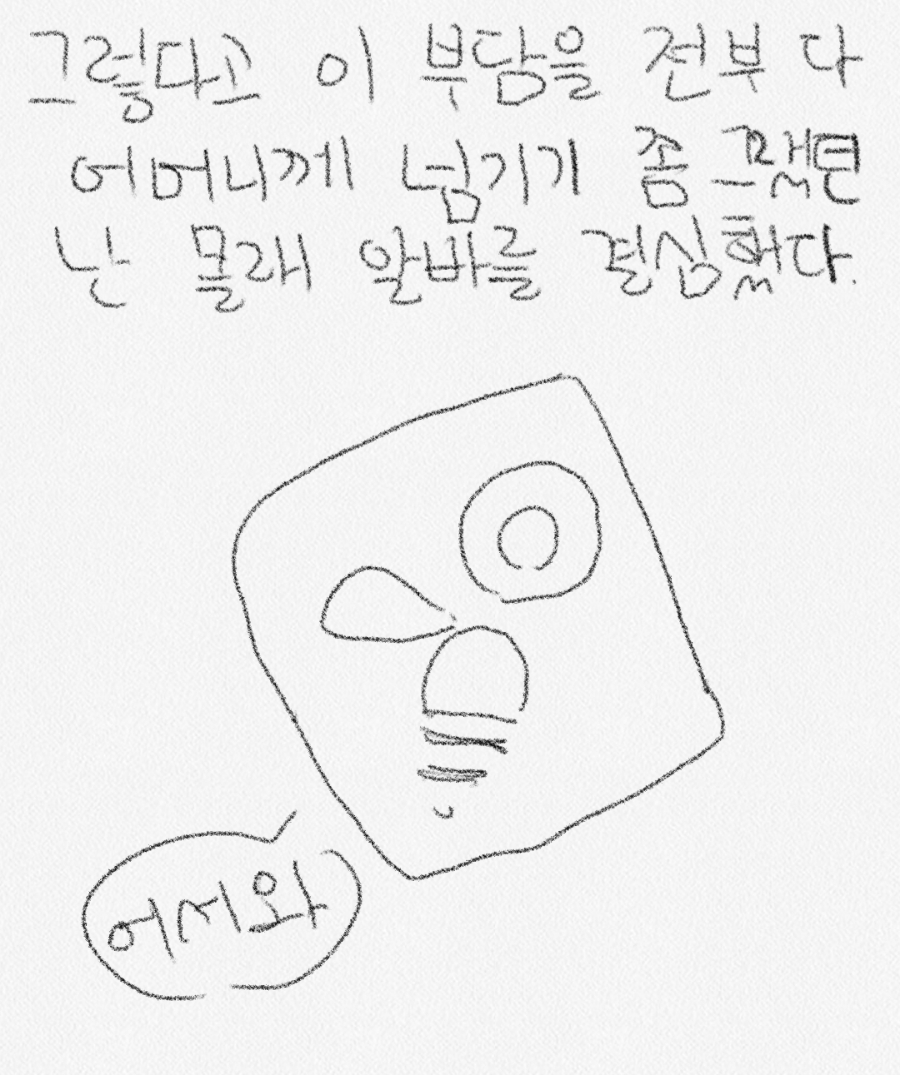 그렇다고 이 부담을 전부 다
어머니께 넘기기 좀 그랬던
난 몰래 알바를 결심했다.
어서와